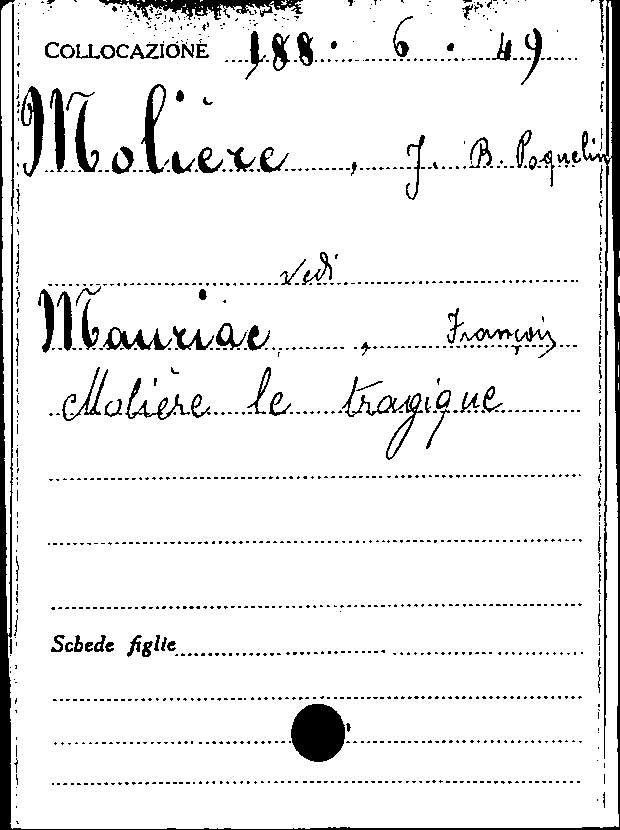 COLLOCAZIONE 188. 6. 49
Molière, J. B. Poquelin
vedi
Mauriac, François
Molière le tragique
Schede figlie